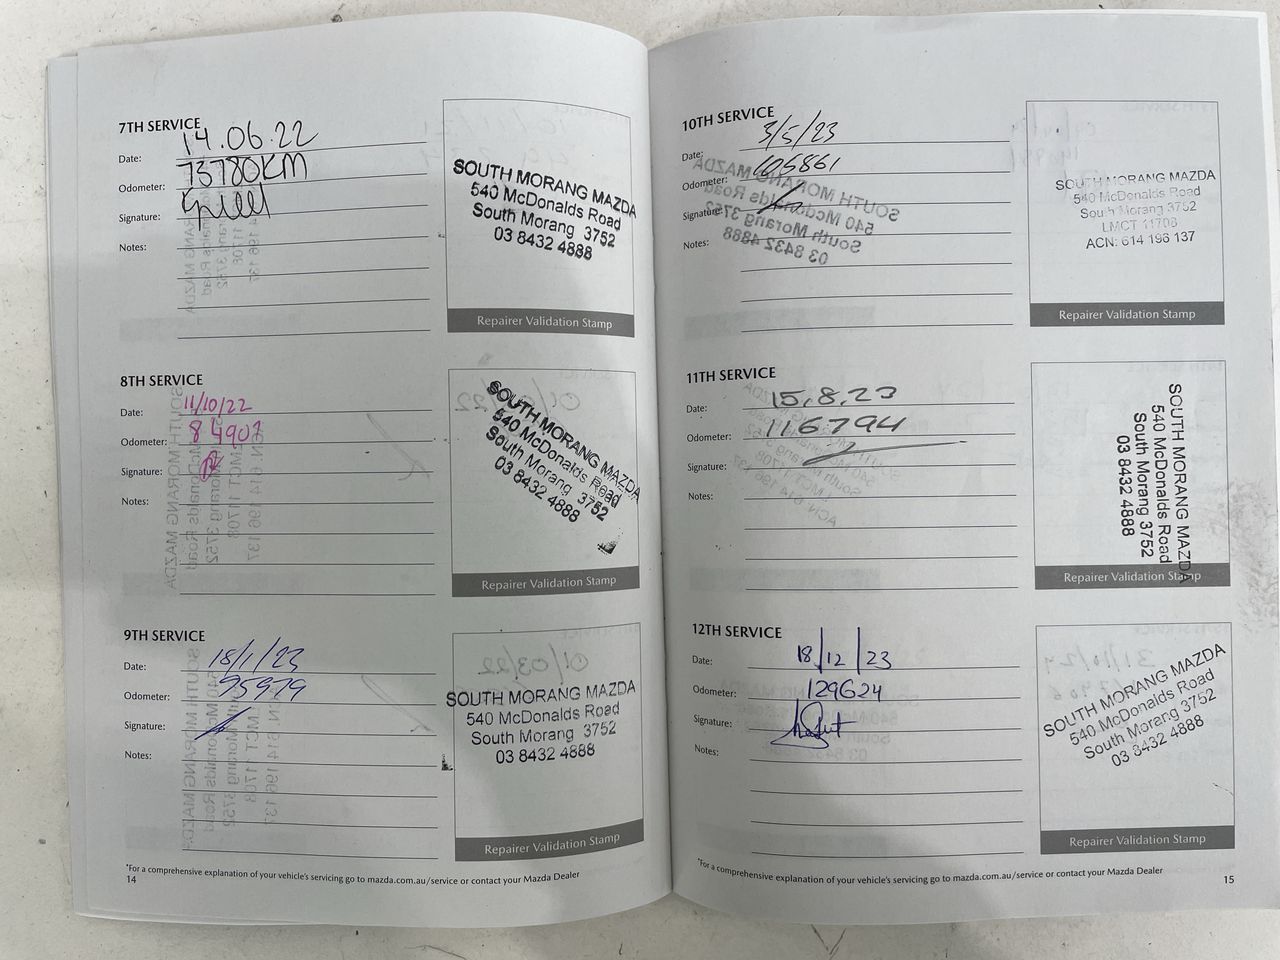 7TH SERVICE
Date: 14.06.22
Odometer: 73780KM
Signature:
Notes:
SOUTH MORANG MAZDA
540 McDonalds Road
South Morang 3752
03 8432 4888
Repairer Validation Stamp
8TH SERVICE
Date: 11/10/22
Odometer: 84907
Signature:
Notes:
SOUTH MORANG MAZDA
540 McDonalds Road
South Morang 3752
03 8432 4888
Repairer Validation Stamp
9TH SERVICE
Date: 18/1/23
Odometer: 95979
Signature:
Notes:
SOUTH MORANG MAZDA
540 McDonalds Road
South Morang 3752
03 8432 4888
Repairer Validation Stamp
*For a comprehensive explanation of your vehicle's servicing go to mazda.com.au/service or contact your Mazda Dealer
14
10TH SERVICE
Date: 3/5/23
Odometer: 106861
Signature:
Notes:
SOUTH MORANG MAZDA
540 McDonalds Road
South Morang 3752
LMCT 11708
ACN: 614 196 137
Repairer Validation Stamp
11TH SERVICE
Date: 15.8.23
Odometer: 116794
Signature:
Notes:
SOUTH MORANG MAZDA
540 McDonalds Road
South Morang 3752
03 8432 4888
Repairer Validation Stamp
12TH SERVICE
Date: 18/12/23
Odometer: 129624
Signature:
Notes:
SOUTH MORANG MAZDA
540 McDonalds Road
South Morang 3752
03 8432 4888
Repairer Validation Stamp
*For a comprehensive explanation of your vehicle's servicing go to mazda.com.au/service or contact your Mazda Dealer
15